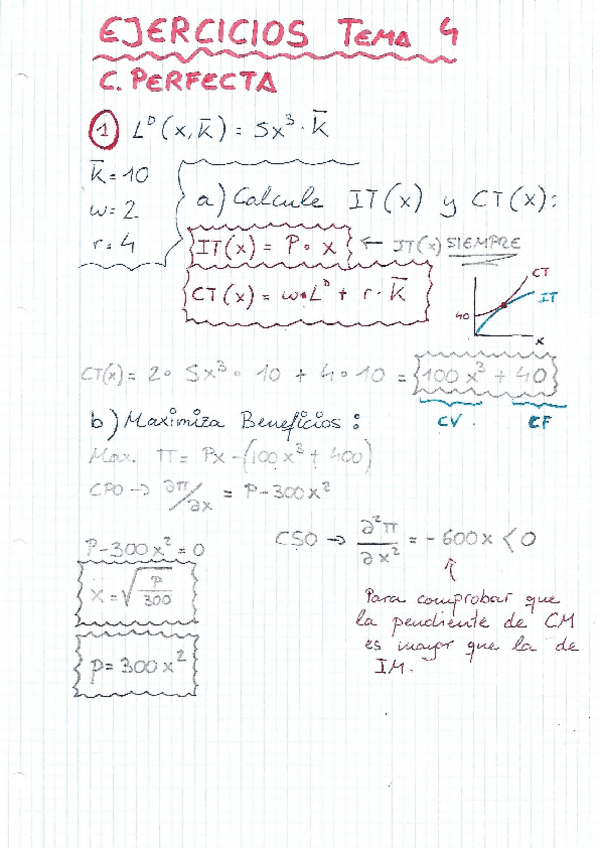 EJERCICIOS TEMA 4
C. PERFECTA
① L^D(x, k̄) = 5x³ · k̄
k̄ = 10
w = 2
r = 4
a) Calcule IT(x) y CT(x):
IT(x) = P · x ← IT(x) SIEMPRE
CT(x) = w · L^D + r · k̄
CT
IT
40
x
CT(x) = 2 · 5x³ · 10 + 4 · 10 = 100x³ + 40
CV CF
b) Maximiza Beneficios:
Max. π = Px - (100x³ + 400)
CPO → ∂π/∂x = P - 300x²
CSO → ∂²π/∂x² = -600x < 0
P - 300x² = 0
x = √(P/300)
P = 300x²
Para comprobar que
la pendiente de CM
es mayor que la de
IM.